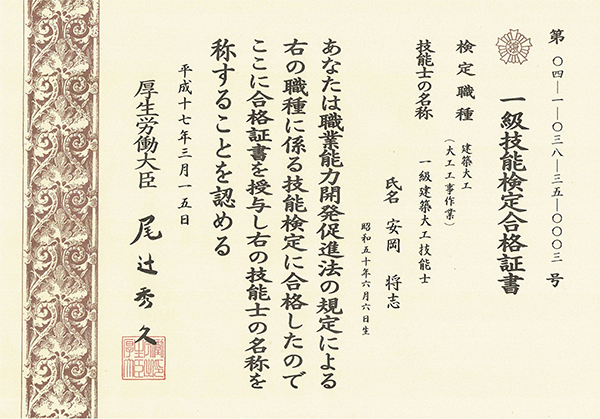 第〇四―一―〇三八―三五―〇〇〇三号
一級技能検定合格証書
検定職種 建築大工
(大工工事作業)
技能士の名称 一級建築大工技能士
氏名 安岡 将志
昭和五十年六月六日生
あなたは職業能力開発促進法の規定による
右の職種に係る技能検定に合格したので
ここに合格証書を授与し右の技能士の名称を
称することを認める
平成十七年三月一五日
厚生労働大臣 尾辻秀久